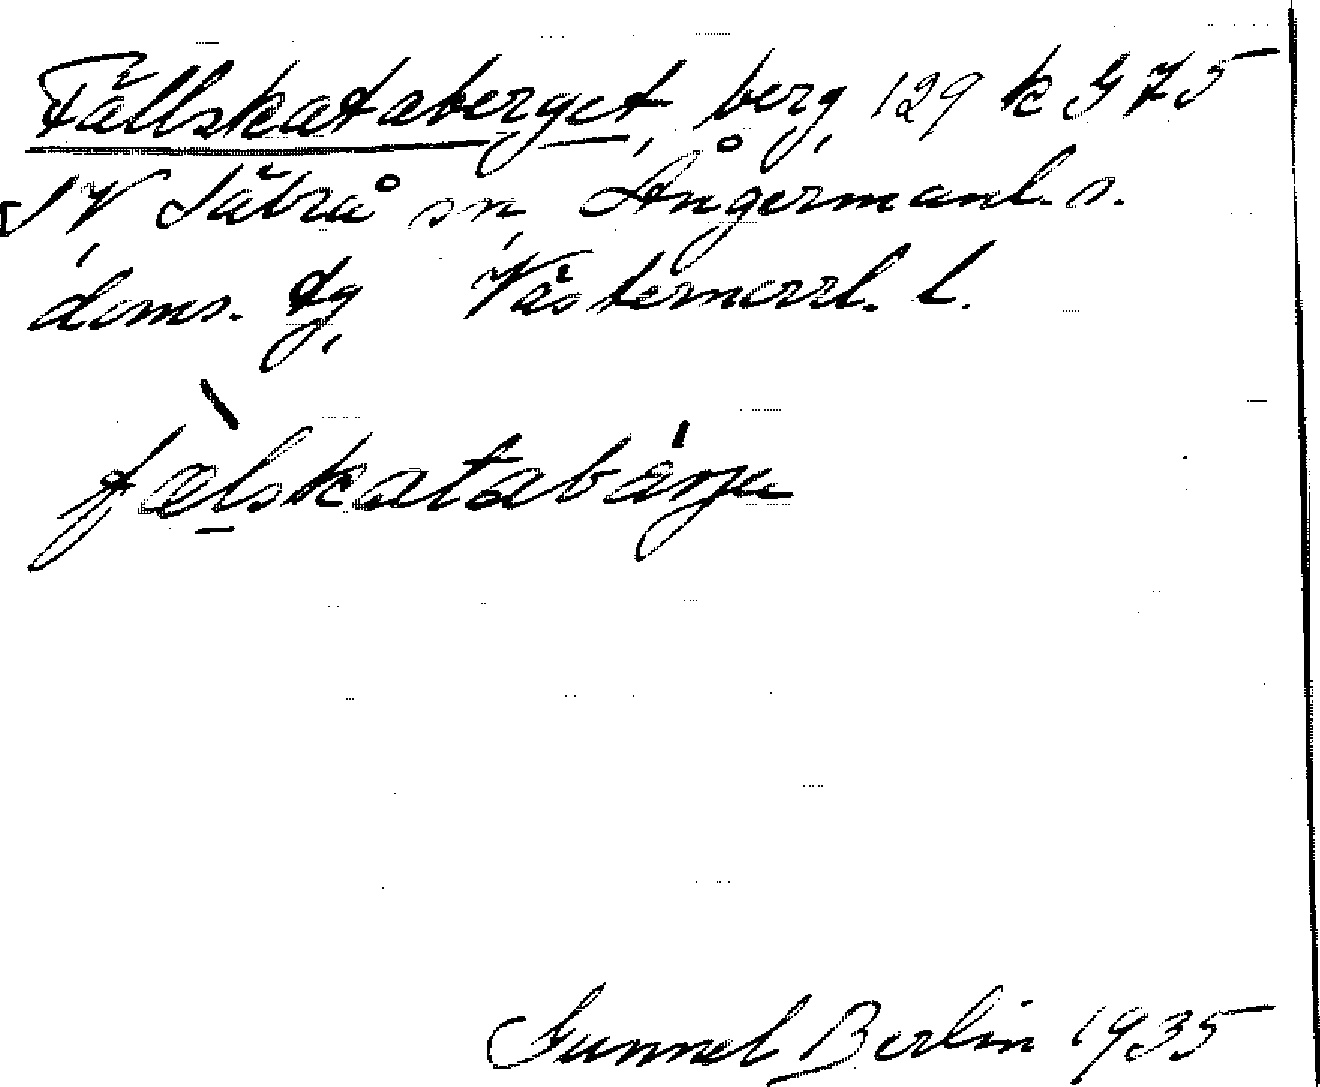 Fällskataberget, berg, 129 k G 75
SV Sätrå sn, Ångermanl. s.
doms. tg, Västernorrl. l.
fælskatabärju
Gunnel Berlin 1935